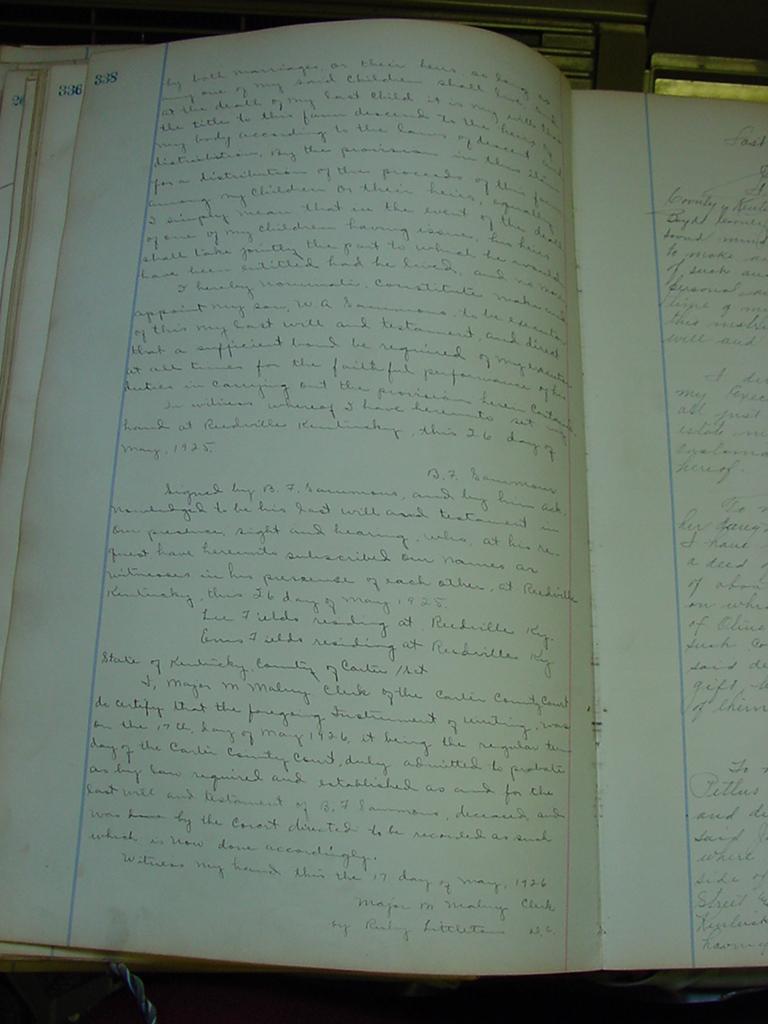 336
338
by both marriages, or their heirs, so long as
any one of my said children shall live, and
at the death of my last child it is my will that
the title to this farm descend to the heirs of
my body according to the laws of descent and
distribution. By the provision in this item
for a distribution of the proceeds of this farm
among my children or their heirs, equally,
I simply mean that in the event of the death
of one of my children having issue, his heirs
shall take jointly the part to which he would
have been entitled had he lived, and no more.
I hereby nominate, constitute make and
appoint my son, W A Sammons, to be executor
of this my last will and testament, and direct
that a sufficient bond be required of my executor
at all times for the faithful performance of his
duties in carrying out the provisions herein contained.
In witness whereof I have hereunto set my
hand at Reedville Kentucky, this 26 day of
May, 1925.
B. F. Sammons
Signed by B. F. Sammons, and by him ack
nowledged to be his last will and testament in
our presence, sight and hearing, who, at his re-
quest have hereunto subscribed our names as
witnesses in his presence of each other, at Reedville
Kentucky, this 26 day of May 1925.
Lee Fields residing at Reedville Ky.
Fields residing at Reedville Ky
State of Kentucky, County of Carter /Sct
I, Major M Clerk of the Carter County Court
do certify that the foregoing Instrument of writing, was
on the 17th, day of May 1926, it being the regular term
day of the Carter County Court, duly admitted to probate
as by law required and established as and for the
last will and testament of B. F Sammons, deceased, and
was by the Court directed to be recorded as such
which is now done accordingly.
Witness my hand this the 17 day of May, 1926
Major M Clerk
by Ruby Littleton D.C.
Last
County of
Boyd County
sound mind
to make
of such
personal
this
will and
I
my Exec
all just
estate
hereof.
To
her
I have
a deed
of
on
of Olive
such
said de
gift,
of them
To
and de
said
where
side of
Street
having